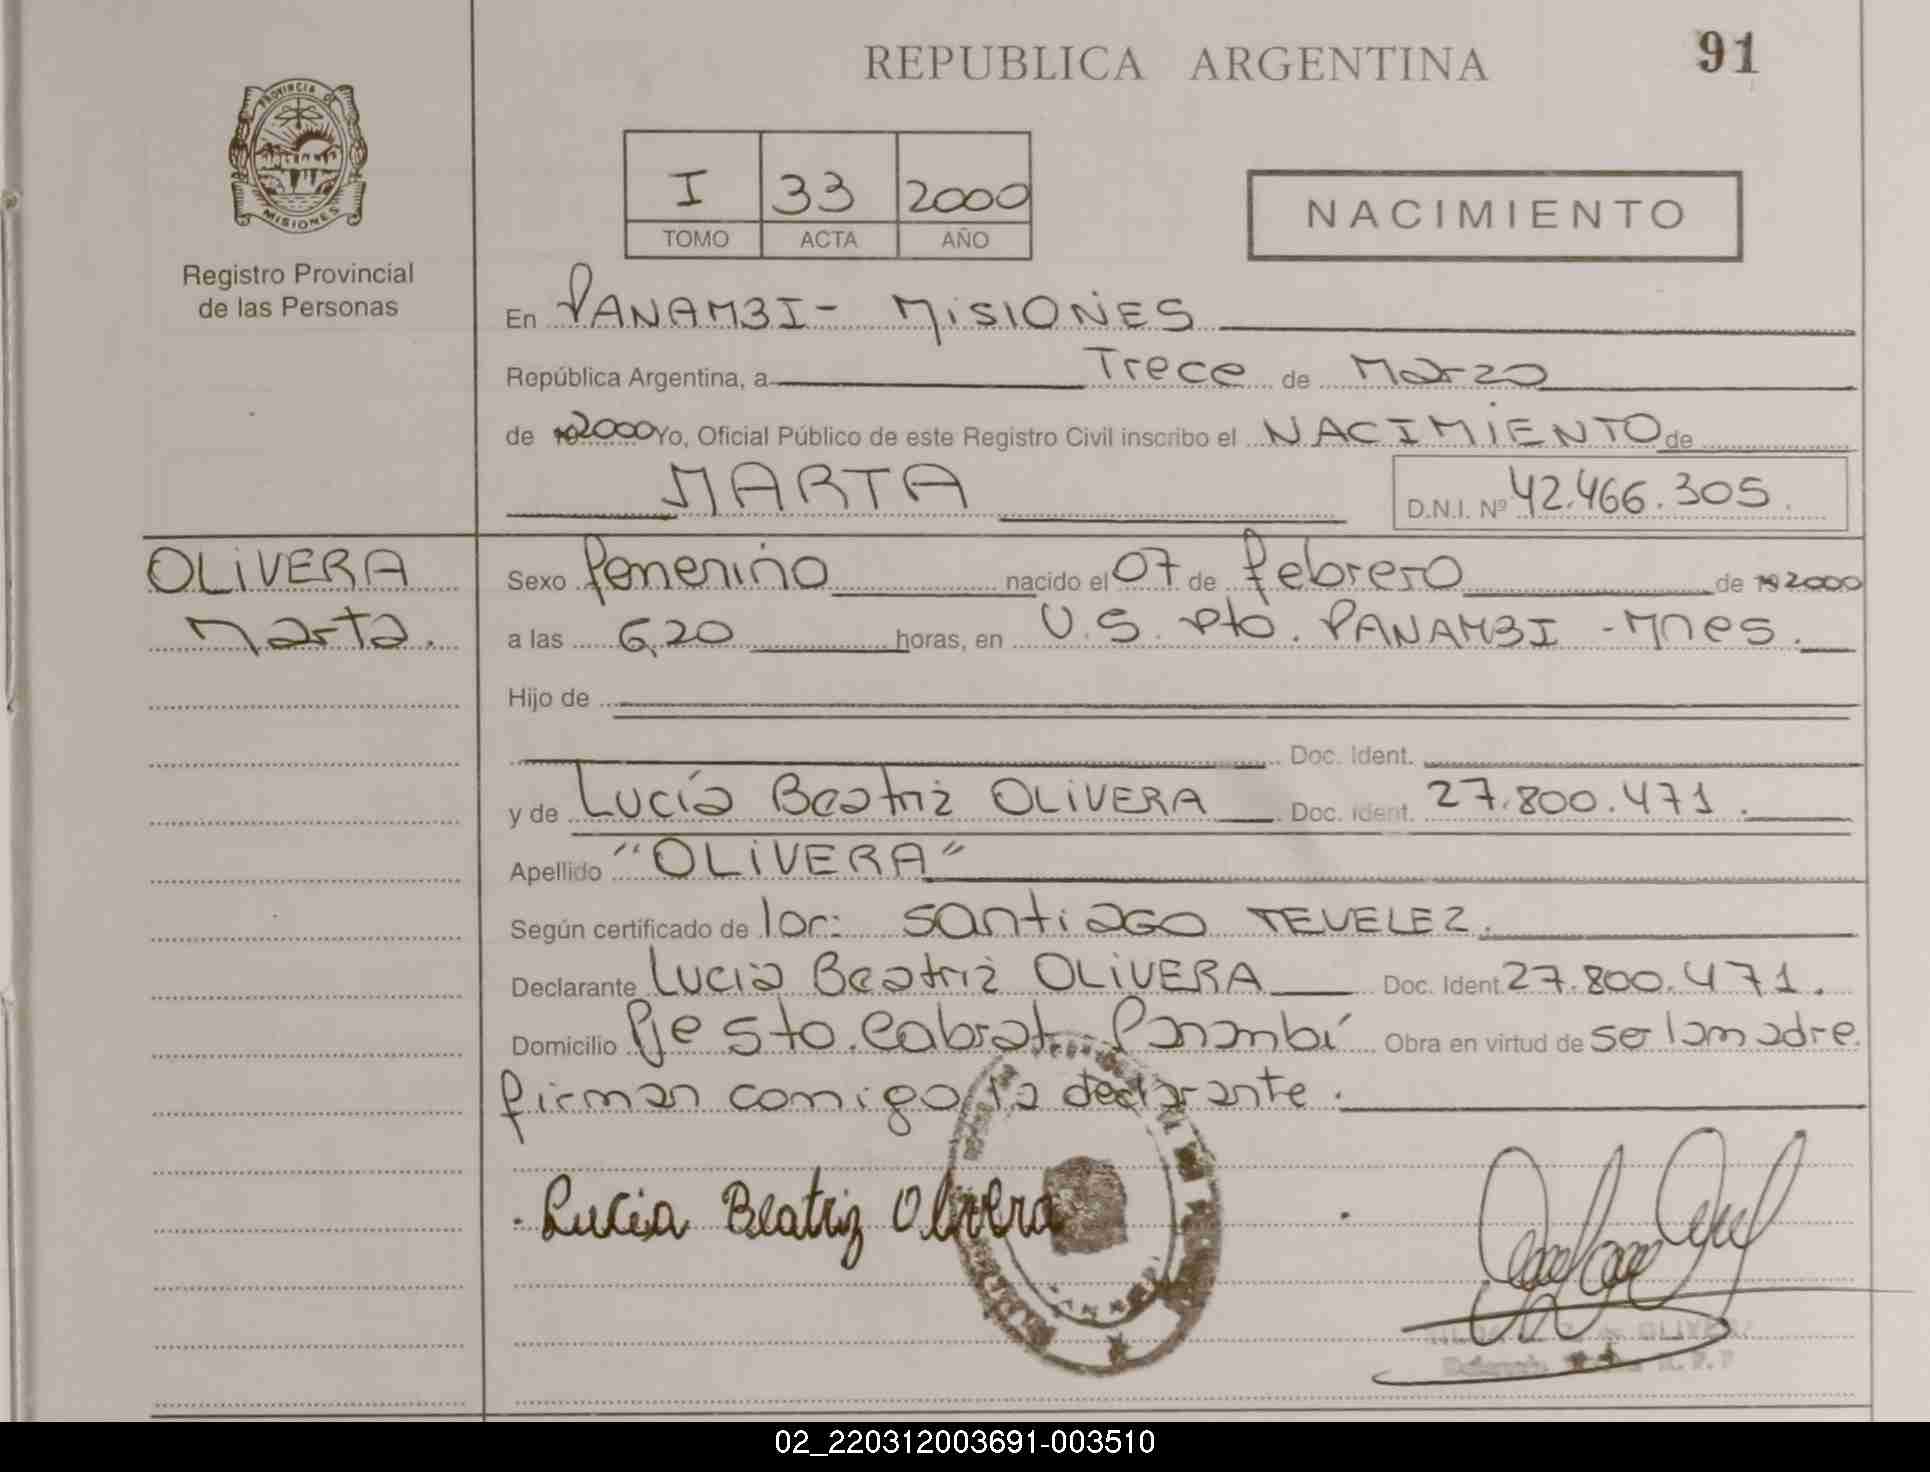 REPUBLICA ARGENTINA
91
PROVINCIA DE
MISIONES
Registro Provincial
de las Personas
I 33 2000
TOMO ACTA AÑO
NACIMIENTO
En PANAMBI - MISIONES
República Argentina, a Trece de Marzo
de 2000 Yo, Oficial Público de este Registro Civil inscribo el NACIMIENTO de
MARTA
D.N.I. Nº 42.466.305
OLIVERA
Marta.
Sexo femenino nacido el 07 de febrero de 19 2000
a las 6,20 horas, en U.S. Pto. PANAMBI - Mnes.
Hijo de
Doc. Ident.
y de Lucía Beatriz OLIVERA Doc. Ident. 27.800.471.
Apellido "OLIVERA"
Según certificado de Santiago TEVELEZ.
Declarante Lucia Beatriz OLIVERA Doc. Ident. 27.800.471.
Domicilio Pje Sto. Cabral Panambí Obra en virtud de ser la madre.
firman comigo la declarante.
Lucia Beatriz Olivera
02_220312003691-003510